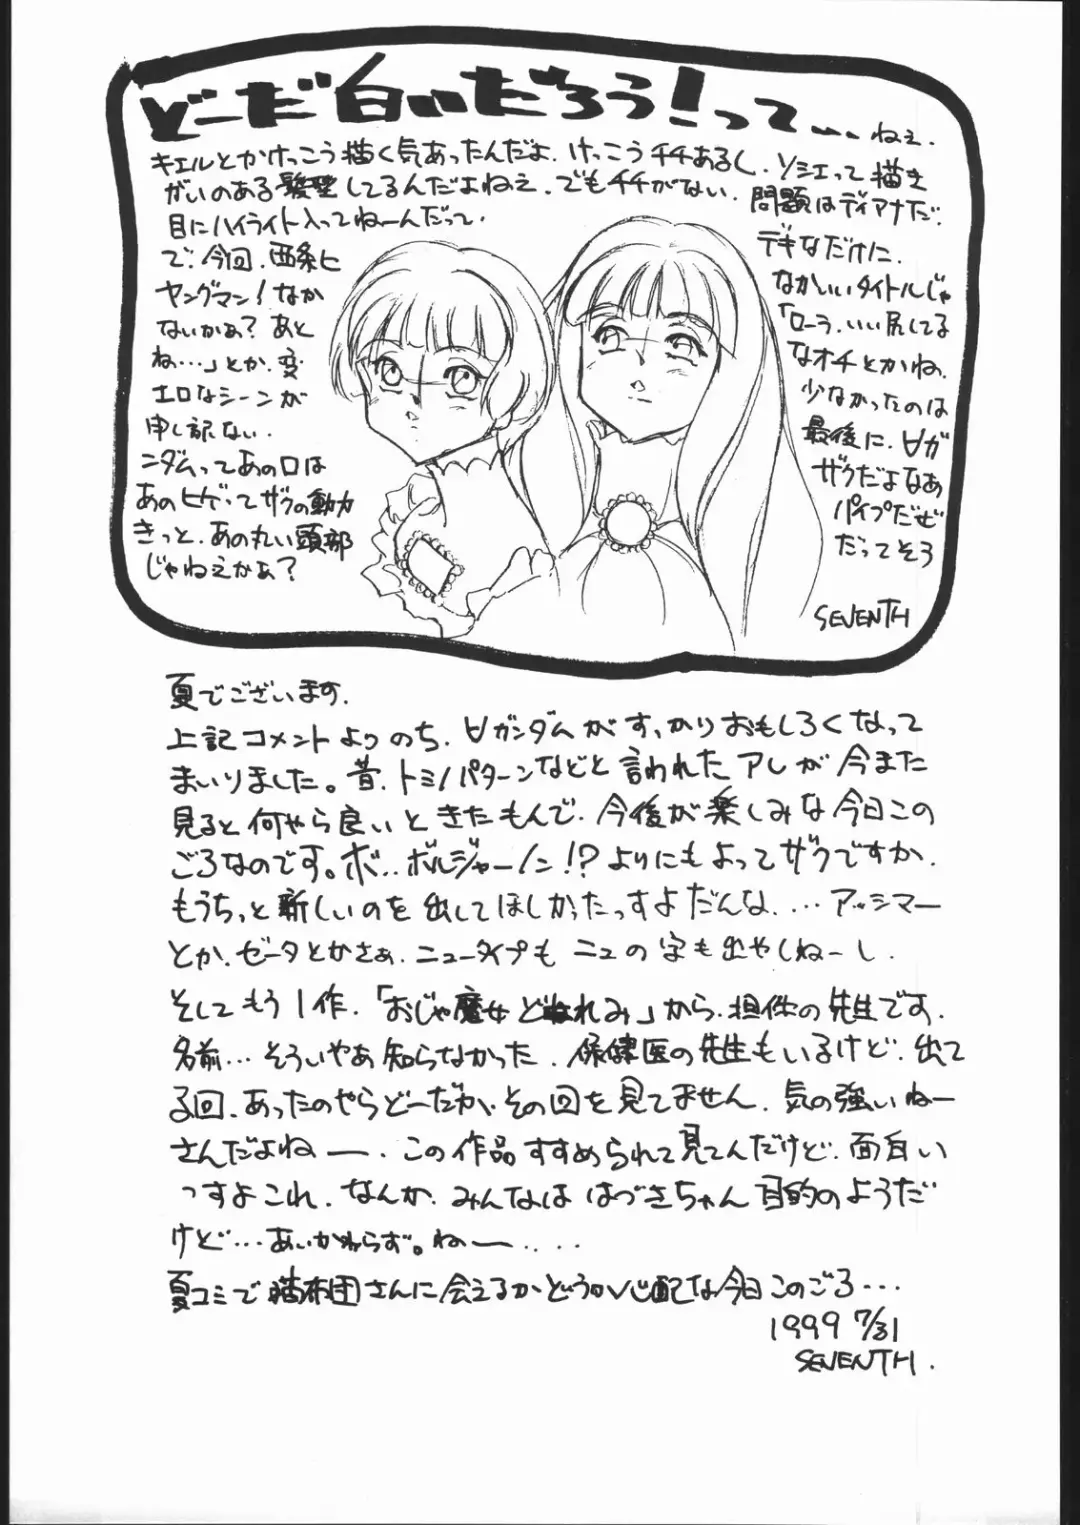 どーだ白いだろう!って…ねぇ.
キエルとかけっこう描く気あったんだよ.けっこうチチあるし.ソシエって描き
がいのある髪型してるんだよねえ.でもチチがない.問題はディアナだ.
目にハイライト入ってねーんだって.
で.今回.西条ヒ
ヤングマン!なか
ないかぁ?あと
ね…」とか.変
エロなシーンが
申し訳ない.
ンダムってあの口は
あのヒゲってザクの動力
きっと.あの丸い頭部
じゃねえかぁ?
デキなだけに.
なかいいタイトルじゃ
「ローラ.いい尻してる
なオチとかね.
少なかったのは
最後に.∀ガ
ザクだよなあ
パイプだぜ
だってそう
SEVENTH
夏でございます.
上記コメントよりのち.∀ガンダムがすっかりおもしろくなって
まいりました。昔.トミノパターンなどと言われたアレが今また
見ると何やら良いときたもんで.今後が楽しみな今日この
ごろなのです。ボ..ボルジャーノン!?よりにもよってザクですか.
もうちっと新しいのを出してほしかったっすよだんな....アッシマー
とか.ゼータとかさぁ.ニュータイプもニュの字も出やしねーし.
そしてもう1作.「おじゃ魔女どれみ」から.担任の先生です.
名前…そういやあ知らなかった.保健医の先生もいるけど.出て
る回.あったのやらどーだか.その回を見てません.気の強いねー
さんだよねー.この作品すすめられて見てんだけど.面白い
っすよこれ.なんか.みんなははづきちゃん目的のようだ
けど…あいかわらず。ねー....
夏コミで猫布団さんに会えるかどうか心配な今日このごろ…
1999 7/31
SEVENTH.